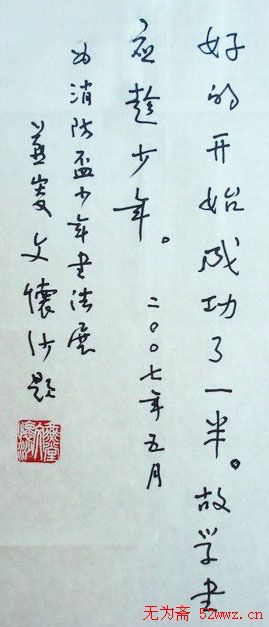 好的开始成功了一半。故学书
应趁少年。
二〇〇七年五月
为消防盃少年书法展
燕叟文懷沙题
无为斋 52wwz.cn